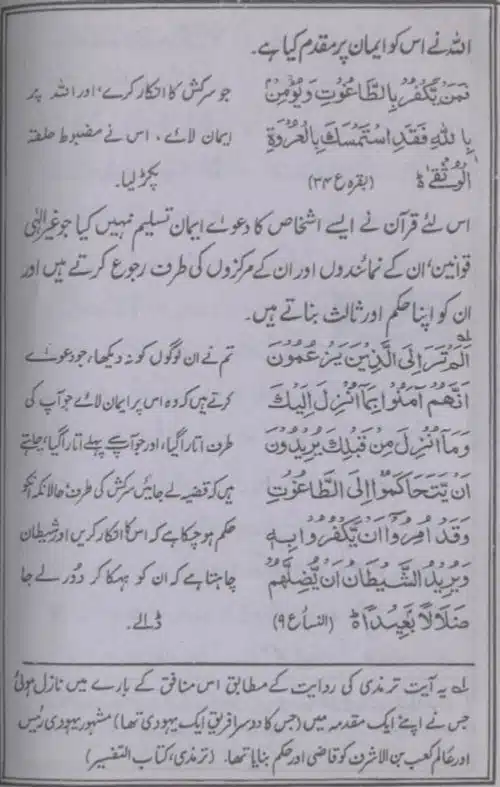 اللہ نے اس کو ایمان پر مقدم کیا ہے۔
فَمَنْ يَّكْفُرْ بِالطَّاغُوْتِ وَيُؤْمِنْ جو سرکش کا انکار کرے، اور اللہ پر
بِاللّٰهِ فَقَدِ اسْتَمْسَكَ بِالْعُرْوَةِ ایمان لائے، اس نے مضبوط حلقہ
الْوُثْقٰى ۃ (بقرہ ع ۳۴) پکڑ لیا۔
اس لئے قرآن نے ایسے اشخاص کا دعوے ایمان تسلیم نہیں کیا جو غیر الٰہی
قوانین، ان کے نمائندوں اور ان کے مرکزوں کی طرف رجوع کرتے ہیں اور
ان کو اپنا حکم اور ثالث بناتے ہیں۔
اَلَمْ تَرَ اِلَى الَّذِيْنَ يَزْعُمُوْنَ تم نے ان لوگوں کو نہ دیکھا، جو دعوے
اَنَّهُمْ اٰمَنُوْا بِمَا اُنْزِلَ اِلَيْكَ کرتے ہیں کہ وہ اس پر ایمان لائے جو آپ کی
وَمَا اُنْزِلَ مِنْ قَبْلِكَ يُرِيْدُوْنَ طرف اتارا گیا، اور جو آپ سے پہلے اتارا گیا، چاہتے
اَنْ يَّتَحَاكَمُوْا اِلَى الطَّاغُوْتِ ہیں کہ قضیہ لے جائیں سرکش کی طرف؛ حالانکہ انکو
وَقَدْ اُمِرُوْا اَنْ يَّكْفُرُوْا بِهٖ حکم ہو چکا ہے کہ اس کا انکار کریں اور شیطان
وَيُرِيْدُ الشَّيْطَانُ اَنْ يُّضِلَّهُمْ چاہتا ہے کہ ان کو بہکا کر دور لے جا
ضَلَالًا بَعِيْدًا ۃ (النساء ع ۹) ڈالے۔
لہ یہ آیت ترمذی کی روایت کے مطابق اس منافق کے بارے میں نازل ہوئی
جس نے اپنے ایک مقدمہ میں (جس کا دوسرا فریق ایک یہودی تھا) مشہور یہودی رئیس
اور عالم کعب بن الاشرف کو قاضی اور حکم بنایا تھا۔ (ترمذی، کتاب التفسیر)